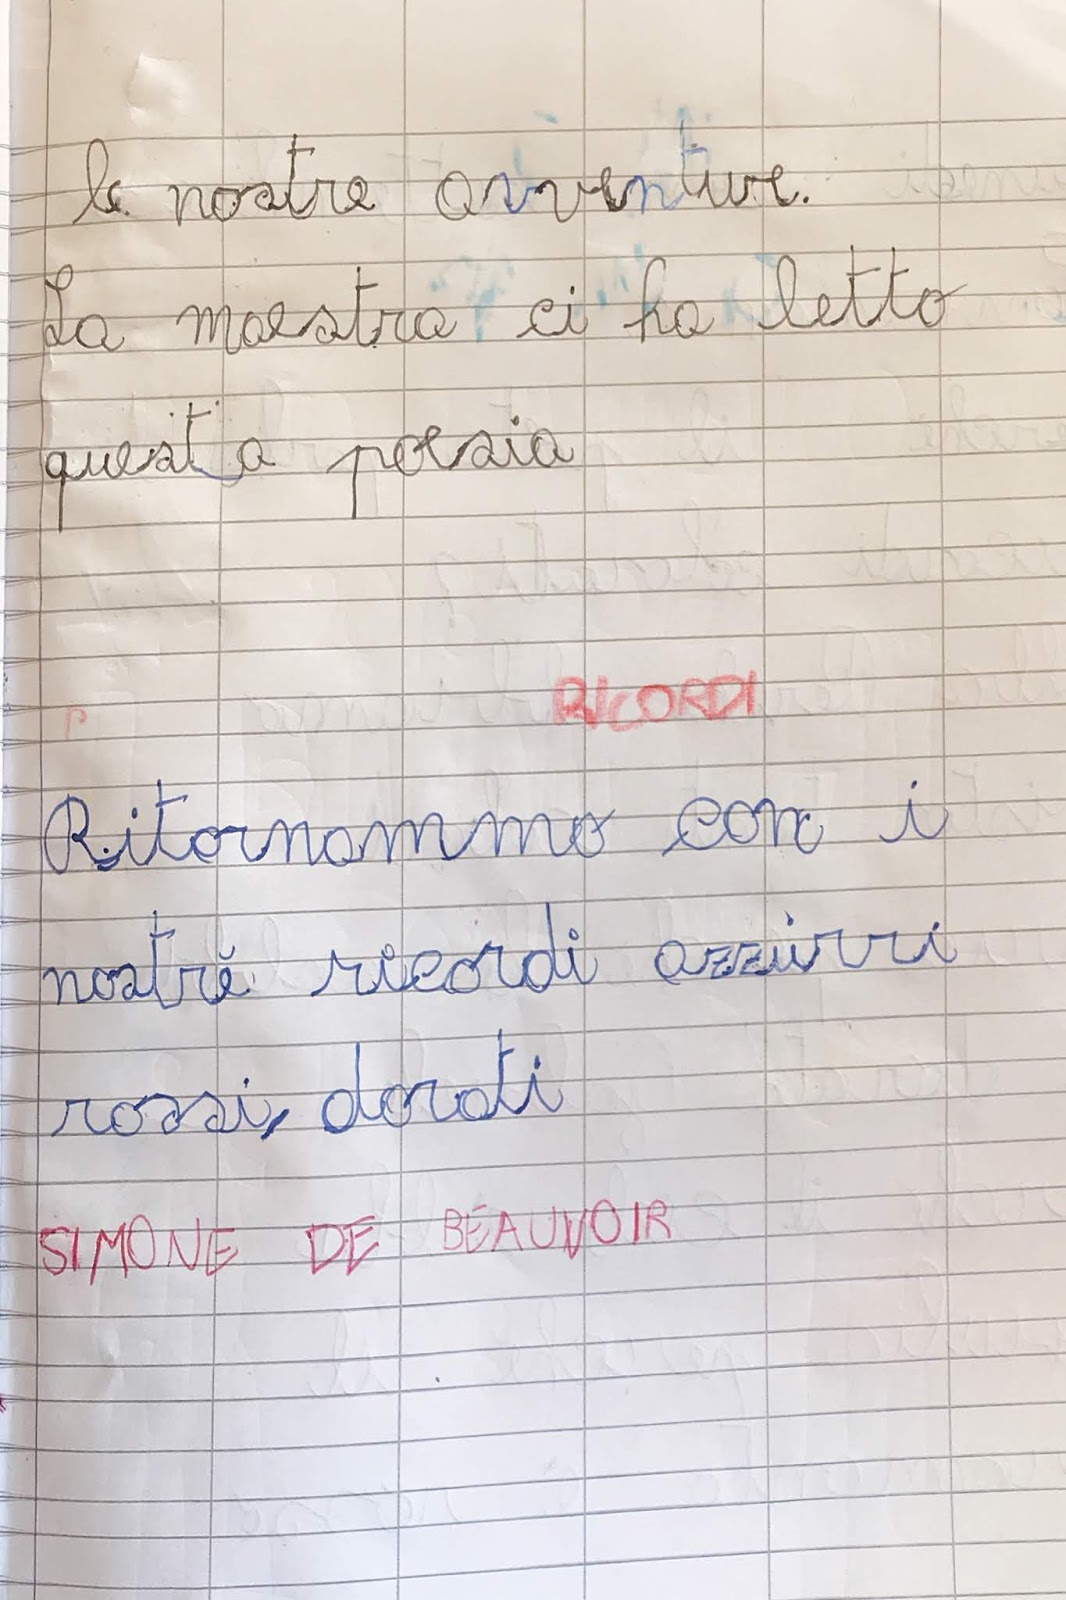 le nostre avventure.
La maestra ci ha letto
questa poesia
RICORDI
Ritornammo con i
nostri ricordi azzurri
rossi, dorati
SIMONE DE BEAUVOIR